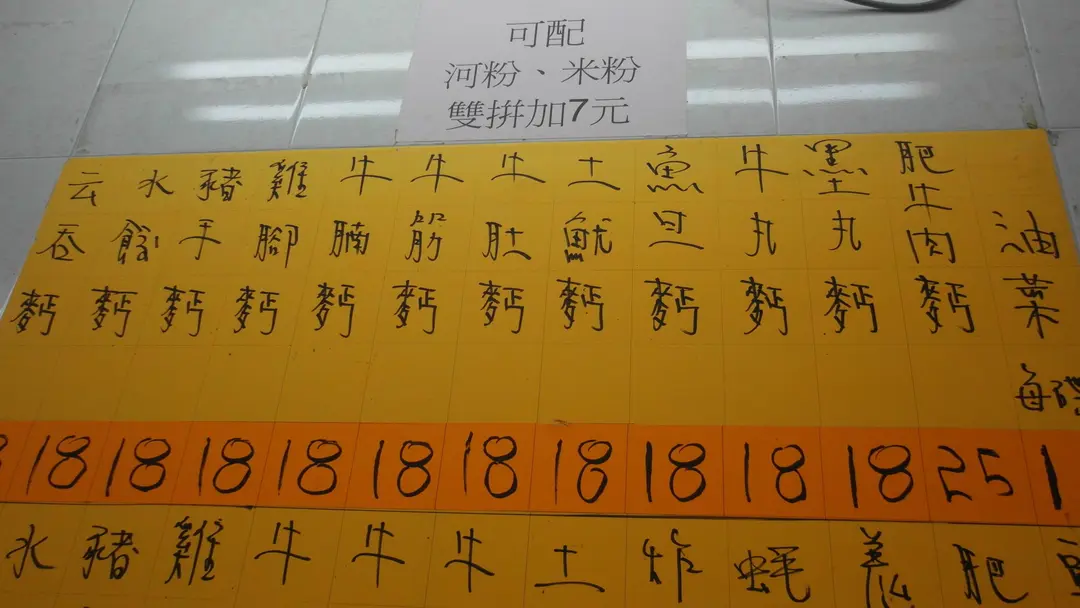 可配
河粉、米粉
雙拼加7元
云吞麪
水餃麪
豬手麪
雞腳麪
牛腩麪
牛筋麪
牛肚麪
土魷麪
魚旦麪
牛丸麪
墨丸麪
肥牛肉麪
油菜每碟
18 18 18 18 18 18 18 18 18 18 25 1
水 豬 雞 牛 牛 牛 土 炸 肥